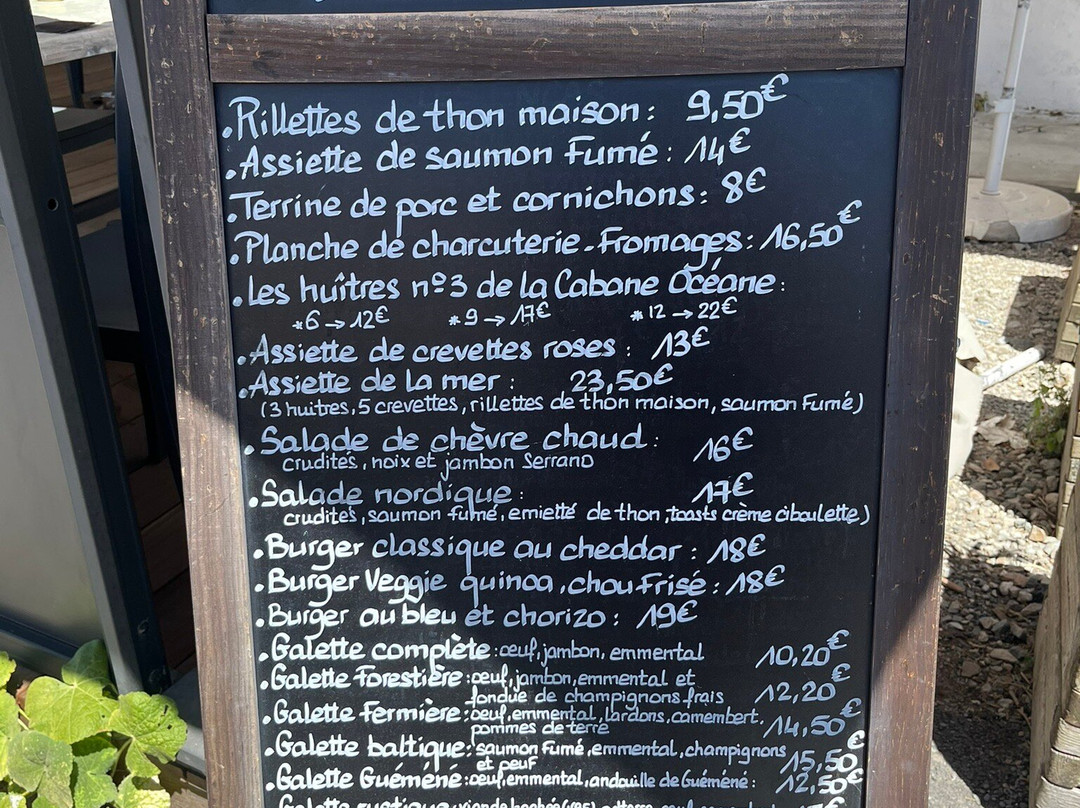 •Rillettes de thon maison : 9,50€
•Assiette de saumon Fumé : 14€
•Terrine de porc et cornichons : 8€
•Planche de charcuterie-Fromages : 16,50€
•Les huîtres n°3 de la Cabane Océane :
*6 → 12€ *9 → 17€ *12 → 22€
•Assiette de crevettes roses : 13€
•Assiette de la mer : 23,50€
(3 huitres, 5 crevettes, rillettes de thon maison, saumon Fumé)
•Salade de chèvre chaud : 16€
crudités, noix et jambon Serrano
•Salade nordique : 17€
crudités, saumon fumé, emietté de thon, toasts crème ciboulette)
•Burger classique au cheddar : 18€
•Burger Veggie quinoa, chou Frisé : 18€
•Burger au bleu et chorizo : 19€
•Galette complète : oeuf, jambon, emmental 10,20€
•Galette Forestière : oeuf, jambon, emmental et
fondue de champignons frais 12,20€
•Galette Fermière : oeuf, emmental, lardons, camembert.
pommes de terre 14,50€
•Galette baltique : saumon Fumé, emmental, champignons
et oeuf 15,50€
•Galette Guémené : oeuf, emmental, andouille de Guémené : 12,50€